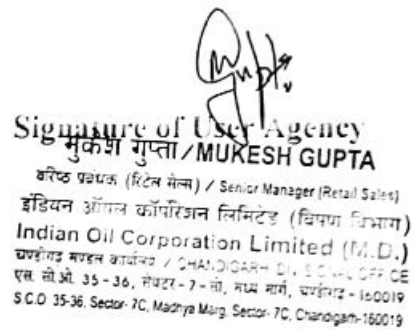 Gupta
Signature of User Agency
मुकेश गुप्ता / MUKESH GUPTA
वरिष्ठ प्रबंधक (रिटेल सेल्स) / Senior Manager (Retail Sales)
इंडियन ऑयल कॉर्पोरेशन लिमिटेड (विपणन विभाग)
Indian Oil Corporation Limited (M.D.)
चण्डीगढ़ मण्डल कार्यालय / CHANDIGARH DIVISIONAL OFFICE
एस. सी.ओ. 35-36, सेक्टर-7-सी, मध्य मार्ग, चण्डीगढ़-160019
S.C.O. 35-36, Sector-7C, Madhya Marg, Sector-7C, Chandigarh-160019